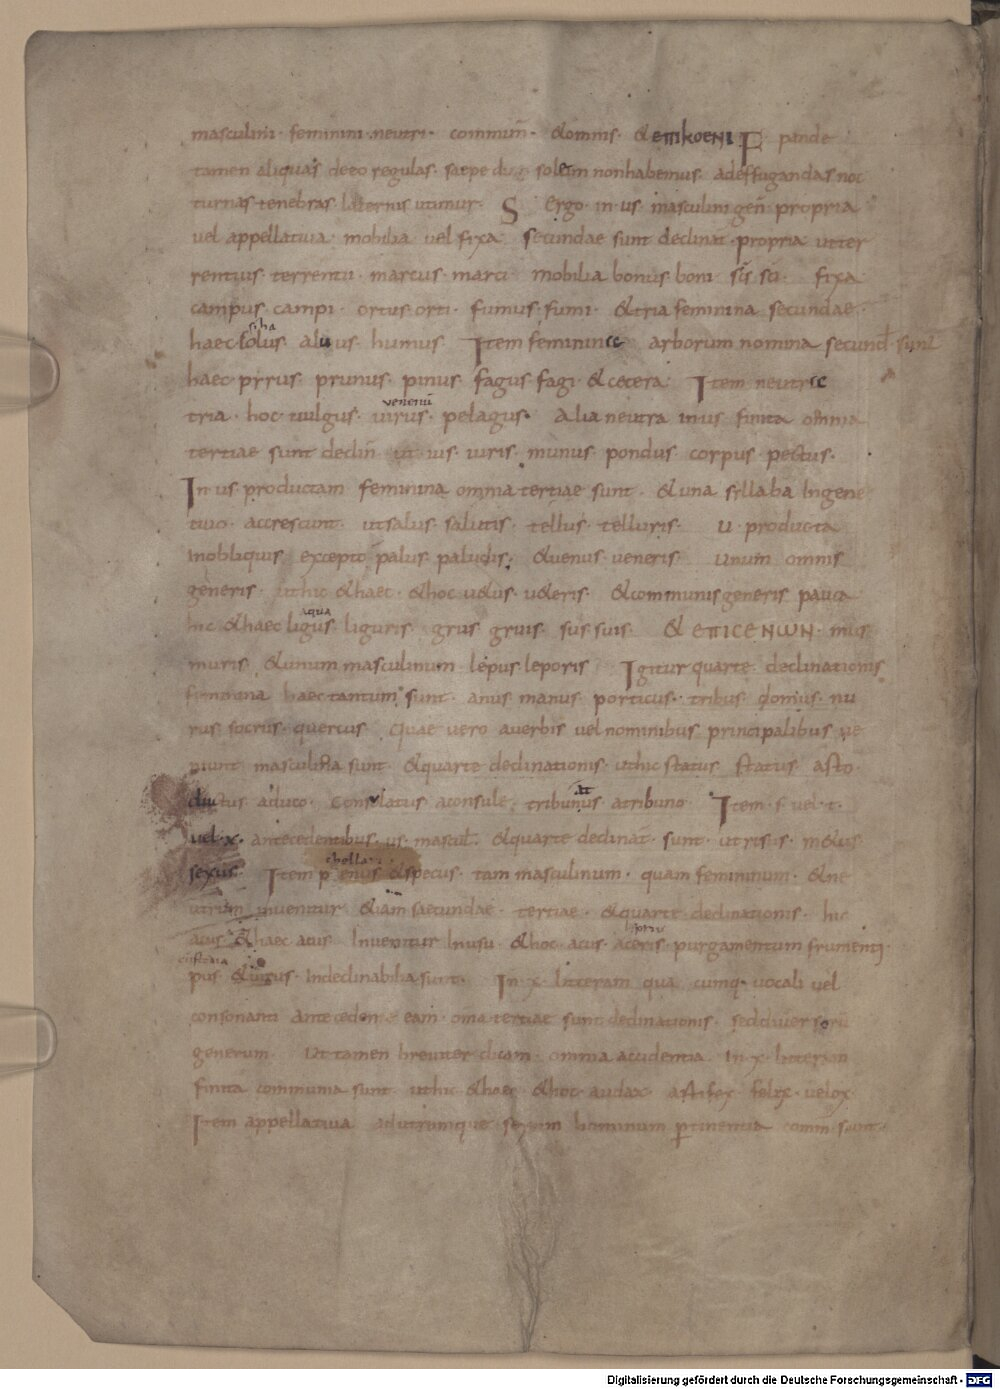 masculini · feminini · neutri · commun̄ · &omnis · & єπikoєNi P pande
tamen aliquas de eo regulas · saepe solem non habemus ad effugandas noc
turnas tenebras laternis utimur · S Ergo in us masculini gen̄ propria
uel appellatiua mobilia uel fixa secundae sunt declinat̄ propria ut ter
rentius terrentii · marcus marci mobilia bonus boni sc̄s sc̄i · fixa
campus campi · ortus orti · fumus fumi · & tria feminina secundae ·
siha
haec folus aluus humus Item feminincc arborum nomina secund̄ sunt
haec pyrus prunus pinus fagus fagi · & cetera Item neutrcc
uenenū
tria · hoc uulgus · uirus · pelagus · Alia neutra in us finita omnia
tertiae sunt declin̄ ut ius iuris munus pondus corpus pectus ·
In us productam feminina omnia tertiae sunt · & una syllaba in gene
tiuo · accrescunt · ut salus salutis · tellus · telluris · u · producta
in obliquis excepto palus paludis · & uenus ueneris Unum omnis
generis · ut hic & haec · & hoc u&us · u&eris · & communis generis pauca
aqua
hic & haec ligus liguris grus gruis sus suis · & єπiCєNωN · mus
muris & unum masculinum lepus leporis Igitur quarte declinationis
feminina haec tantum sunt · anus manus porticus · tribus domus · nu
rus socrus · quercus Quae uero a uerbis uel nominibus principalibus ue
niunt masculina sunt · & quarte declinationis ut hic status status a sto ·
at
ductus a duco · Consulatus a consule · tribunus a tribuno · Item · s · uel · t ·
uel · x · antecedentibus · us · mascul̄ · & quarte declinat̄ · sunt · ut risus · m&us
chellari ·
sexus · Item p enus & specus · tam masculinum · quam femininum · & ne
utrum inuenitur & iam saecundae · tertiae · & quarte declinationis · hic
acus & haec acus Inuenitur In usu · & hoc · acus · aceris purgamentum frumenti ·
custodia
pus & uigus · Indeclinabilia sunt · In · x · litteram qua cumq · uocali uel
consonanti antecedente eam · om̄a tertiae sunt declinationis · sed diuersorū
generum · Ut tamen breuiter dicam · omnia accidentia In · x · litteram
finita communia sunt ut hic & haec & hoc audax artifex felix · uelox
Item appellatiua ad utrumque sexum hominum ꝑtinentia comm̄ sunt ·
Digitalisierung gefördert durch die Deutsche Forschungsgemeinschaft - DFG